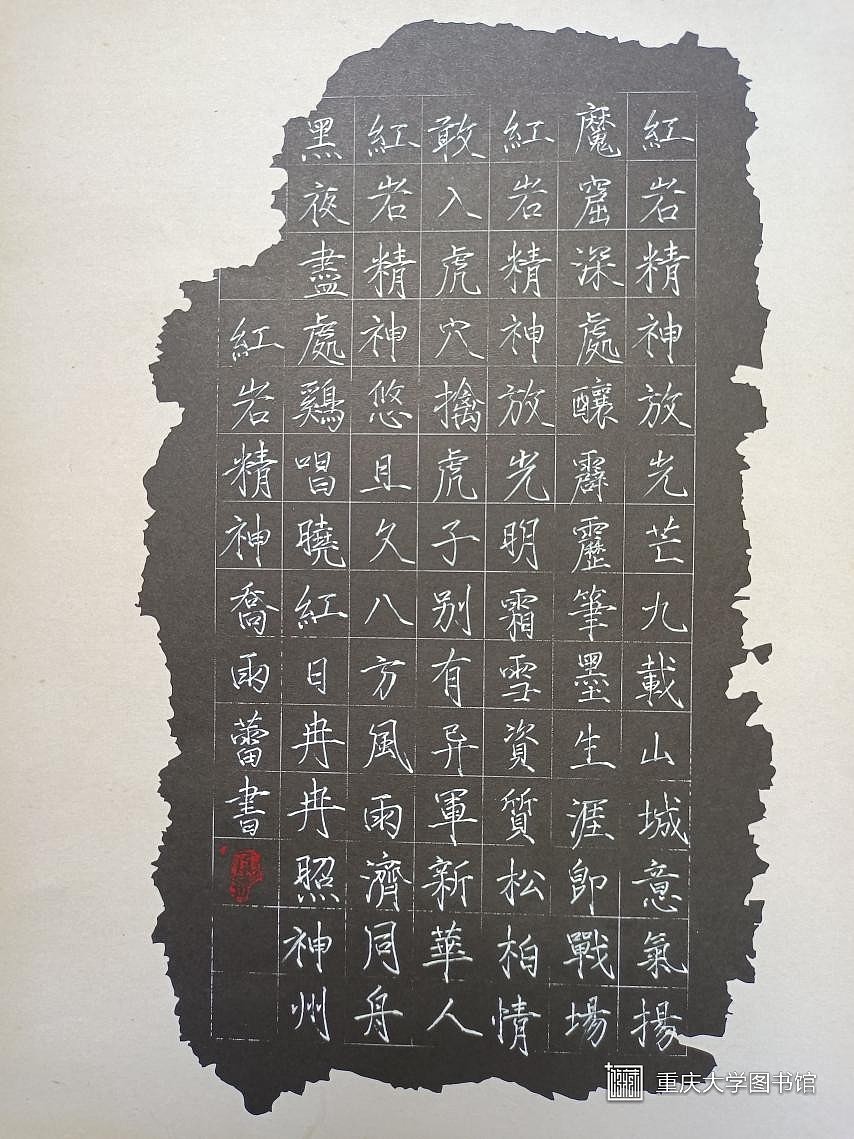 紅岩精神放光芒九載山城意氣揚
魔窟深處釀霹靂筆墨生涯即戰場
紅岩精神放光明霜雪資質松柏情
敢入虎穴擒虎子别有异軍新華人
紅岩精神悠且久八方風雨濟同舟
黑夜盡處鷄唱曉紅日冉冉照神州
紅岩精神喬雨蕾書
重庆大学图书馆